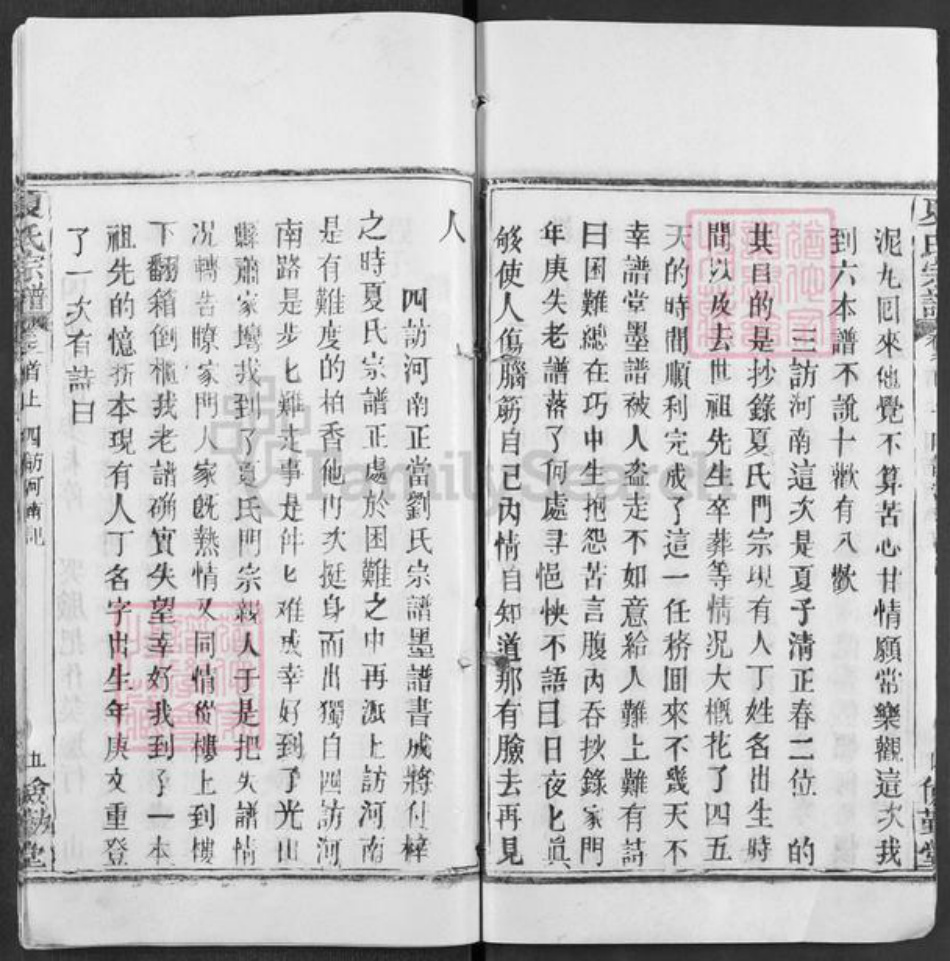 泥九回來他覺不算苦心甘情願常樂觀這次我
到六本譜不說十歡有八歡
三訪河南這次是夏予清正春二位 的
其目的是抄錄夏氏門宗現有人丁姓名出生時
間以及去世祖先生卒葬等情況大概花了四五
天的時間順利完成了這一任務回來不幾天不
幸譜堂墨譜被人盗走不如意給人難上難有詩
曰困難總在巧中生抱怨苦言腹內吞抄錄家門
年庚失老譜落了何處寻悒怏不語日日夜匕眞
够使人傷腦筋自己內情自知道那有臉去再見
人
四訪河南正當劉氏宗譜墨譜書成將付梓
之時夏氏宗譜正處於困難之中再派上訪河南
是有難度的柏香他再次挺身而出獨自四訪河
南路是步匕難走事是件匕难成幸好到了光山
縣蕭家塆我到了夏氏門宗親人于是把失譜情
况轉告瞭家門人家旣熱情又同情從樓上到樓
下翻箱倒櫃我老譜确實失望幸好我到了一本
祖先的憶折本現有人丁名字出生年庚又重登
了一次有詩曰
夏氏宗譜 卷之首上 四訪河南記
FamilySearch